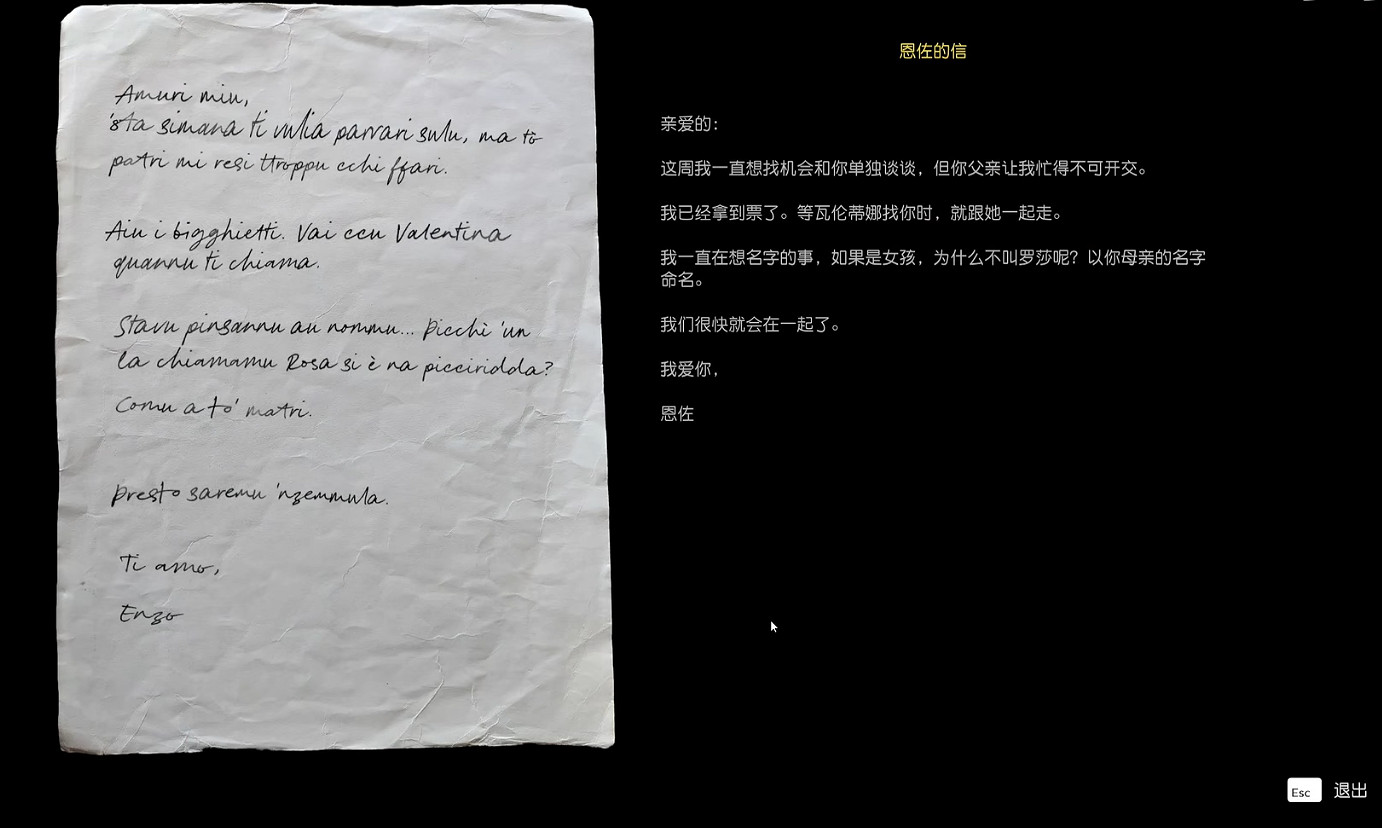 Amuri miu,
'sta simana ti vulia parrari sulu, ma to
patri mi resi ttroppu cchi ffari.
Aiu i bigghietti. Vai ccu Valentina
quannu ti chiama.
Stavu pinsannu au nommu... Picchì 'un
la chiamamu Rosa si è na picciridda?
Comu a to' matri.
Presto saremu 'nzemmula.
Ti amo,
Enzo
恩佐的信
亲爱的：
这周我一直想找机会和你单独谈谈，但你父亲让我忙得不可开交。
我已经拿到票了。等瓦伦蒂娜找你时，就跟她一起走。
我一直在想名字的事，如果是女孩，为什么不叫罗莎呢？以你母亲的名字
命名。
我们很快就会在一起了。
我爱你，
恩佐
Esc 退出